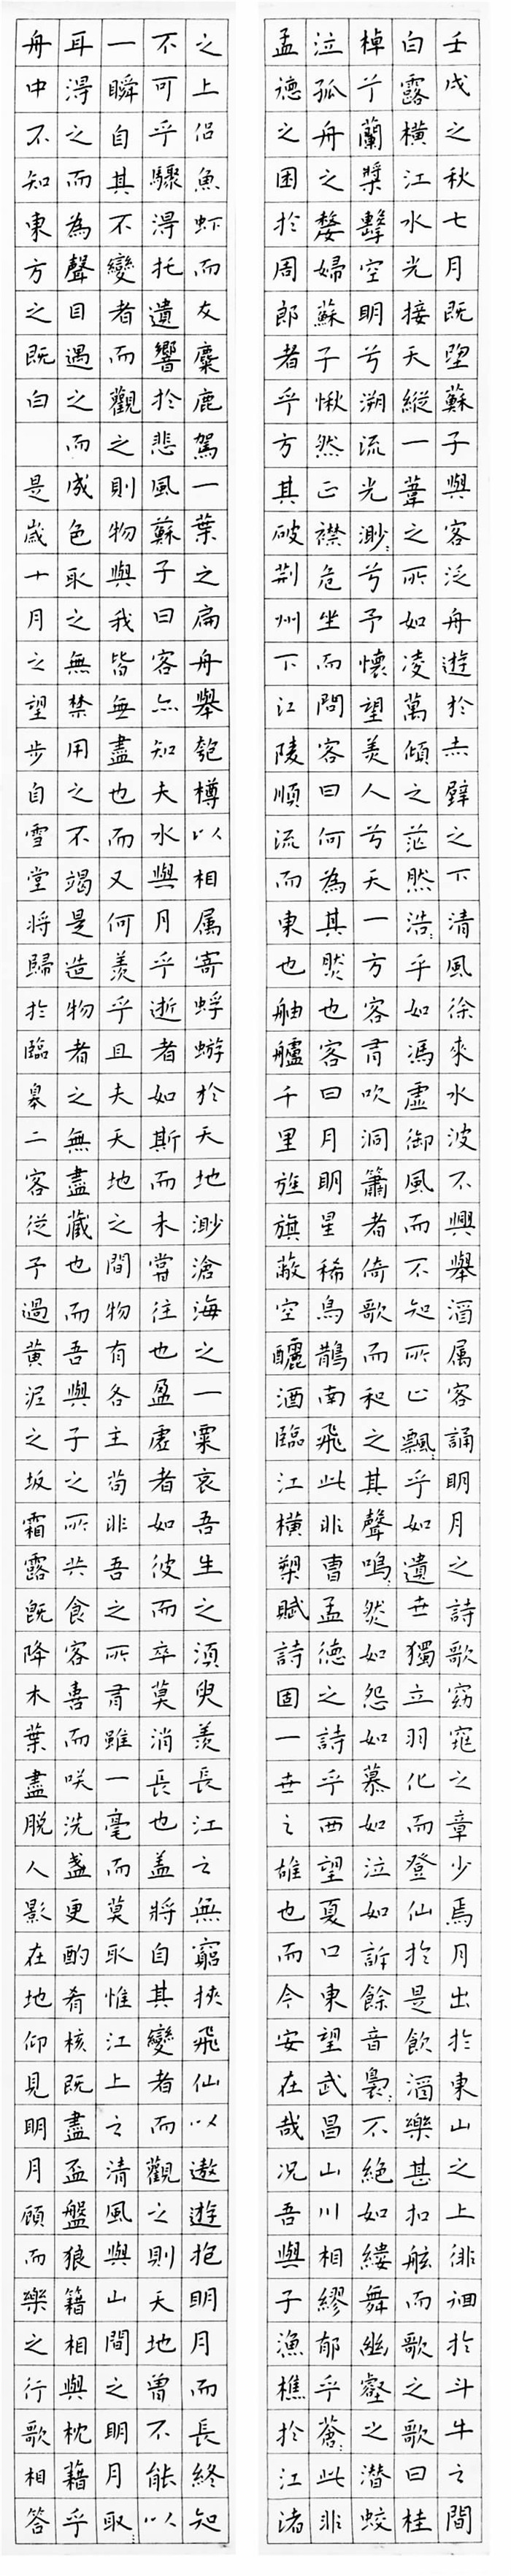 壬戌之秋七月既望蘇子與客泛舟遊於赤壁之下清風徐來水波不興舉酒属客誦明月之詩歌窈窕之章少焉月出於東山之上徘徊於斗牛之間
白露橫江水光接天縱一葦之所如凌萬傾之茫然浩々乎如馮虛御風而不知所止飄々乎如遺世獨立羽化而登仙於是飲酒樂甚扣舷而歌之歌曰桂
棹兮蘭槳擊空明兮溯流光渺々兮予懷望美人兮天一方客有吹洞簫者倚歌而和之其聲嗚々然如怨如慕如泣如訴餘音裊々不絕如縷舞幽壑之潛蛟
泣孤舟之嫠婦蘇子愀然正襟危坐而問客曰何為其然也客曰月明星稀烏鵲南飛此非曹孟德之詩乎西望夏口東望武昌山川相繆郁乎蒼々此非
孟德之困於周郎者乎方其破荆州下江陵順流而東也舳艫千里旌旗蔽空釃酒臨江橫槊賦詩固一世之雄也而今安在哉況吾與子漁樵於江渚
之上侣魚虾而友麋鹿駕一葉之扁舟舉匏樽以相属寄蜉蝣於天地渺滄海之一粟哀吾生之須臾羨長江之無窮挾飛仙以遨遊抱明月而長終知
不可乎驟得托遺響於悲風蘇子曰客亦知夫水與月乎逝者如斯而未嘗往也盈虛者如彼而卒莫消長也盖將自其變者而觀之則天地曾不能以
一瞬自其不變者而觀之則物與我皆無盡也而又何羨乎且夫天地之間物有各主苟非吾之所有雖一毫而莫取惟江上之清風與山間之明月取
耳得之而為聲目遇之而成色取之無禁用之不竭是造物者之無盡藏也而吾與子之所共食客喜而咲洗盞更酌肴核既盡盃盤狼籍相與枕藉乎
舟中不知東方之既白 是歲十月之望步自雪堂將歸於臨皋二客從予過黄泥之坂霜露既降木葉盡脱人影在地仰見明月顧而樂之行歌相答